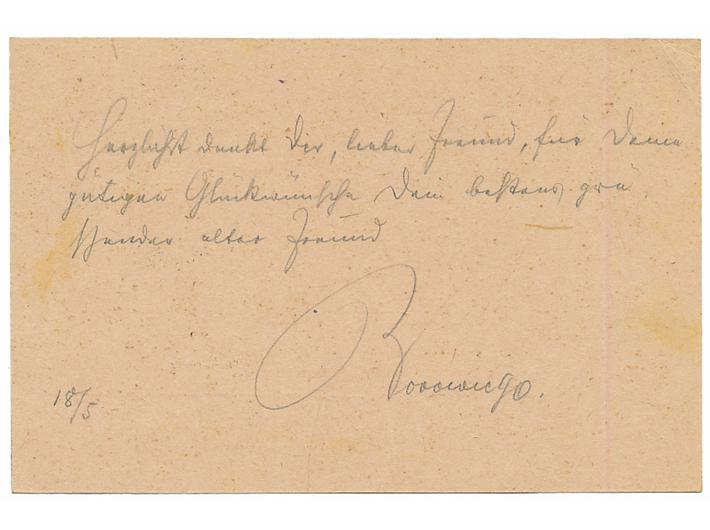 Herzlichst dankt Dir, lieber Freund, für Deine
gütigen Glückwünsche Dein bestens grü-
ssender alter Freund
18/5